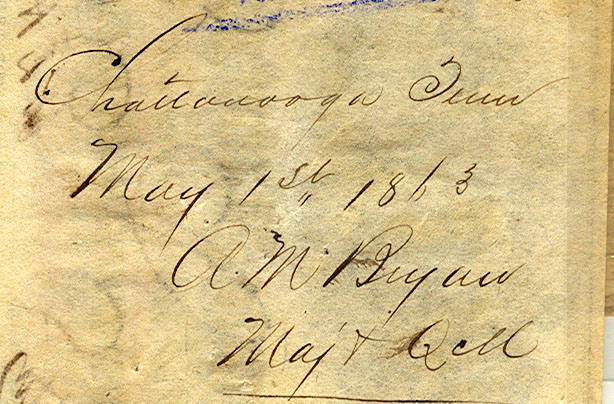 Chattanooga Tenn
May 1st 1863
A. M. Bryan
Maj & QM